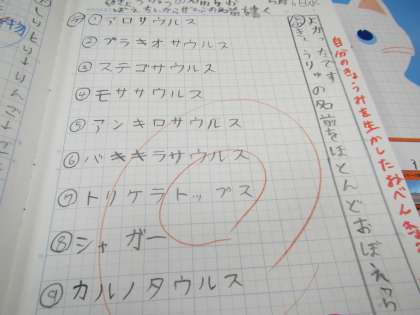 自分のきょうみを生かしたおべん
よかったです
うりゅうの名前をほとんどおぼえ
①アロサウルス
②ブラキオサウルス
③ステゴサウルス
④モササウルス
⑤アンキロサウルス
⑥バキキラサウルス
⑦トリケラトップス
⑧シャガー
⑨カルノタウルス
しりとり→りんご→